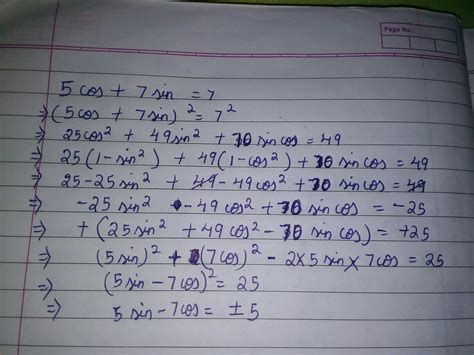 Page No.:
5cos + 7sin = 7
⇒ (5cos + 7sin)² = 7²
⇒ 25cos² + 49sin² + 70 sincos = 49
⇒ 25(1-sin²) + 49(1-cos²) + 70 sincos = 49
⇒ 25-25sin² + 49-49cos² + 70 sincos = 49
⇒ -25sin² -49cos² + 70 sincos = -25
⇒ +(25sin² + 49cos² - 70 sincos) = +25
⇒ (5sin)² + (7cos)² - 2×5sin×7cos = 25
⇒ (5sin-7cos)² = 25
⇒ 5sin-7cos = ±5